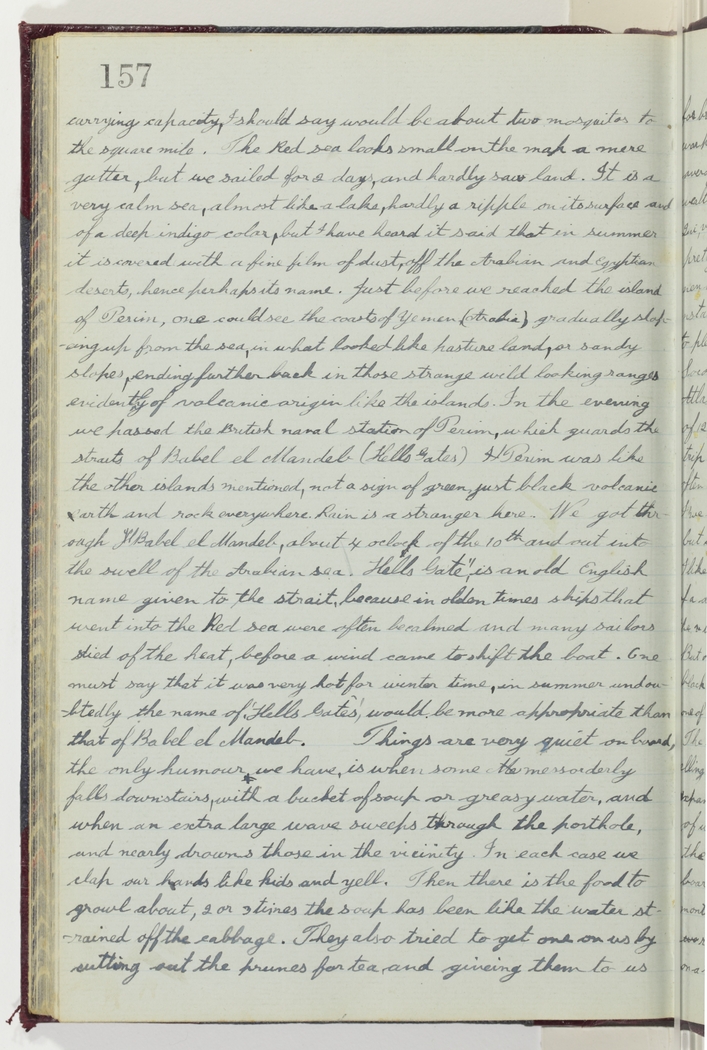 157
carrying capacity, I should say would be about two mosquitos to
the square mile. The Red sea looks small on the map a mere
gutter, but we sailed for days, and hardly saw land. It is a
very calm sea, almost like a lake, hardly a ripple on its surface and
of a deep indigo color, but I have heard it said that in summer
it is covered with a fine film of dust, off the Arabian and Egyptian
deserts, hence perhaps its name. Just before we reached the island
of Perim, one could see the coasts of Yemen (Arabia) gradually slop-
-eing up from the sea, in what looked like pasture land, or sandy
slopes, ending further back in those strange wild looking ranges
evidently of volcanic origin like the islands. In the evening
we passed the British naval station of Perim, which guards the
straits of Babel el Mandeb (Hells Gates) Perim was like
the other islands mentioned, not a sign of green, just black volcanic
earth and rock everywhere. Rain is a stranger here. We got thr-
ough Babel el Mandeb, about 4 oclock of the 10th and out into
the swell of the Arabian sea. "Hells Gate", is an old English
name given to the strait, because in olden times ships that
went into the Red sea were often becalmed and many sailors
died of the heat, before a wind came to shift the boat. One
must say that it was very hot for winter time, in summer undou-
-btedly the name of 'Hells Gates', would be more appropriate than
that of Babel el Mandeb. Things are very quiet on board,
the only humour we have, is when some mess orderly
falls downstairs, with a bucket of soup or greasy water, and
when an extra large wave sweeps through the porthole,
and nearly drowns those in the vicinity. In each case we
clap our hands like kids and yell. Then there is the food to
growl about, 2 or 3 times the soup has been like the water st-
-rained off the cabbage. They also tried to get one on us by
cutting out the prunes for tea, and giveing them to us